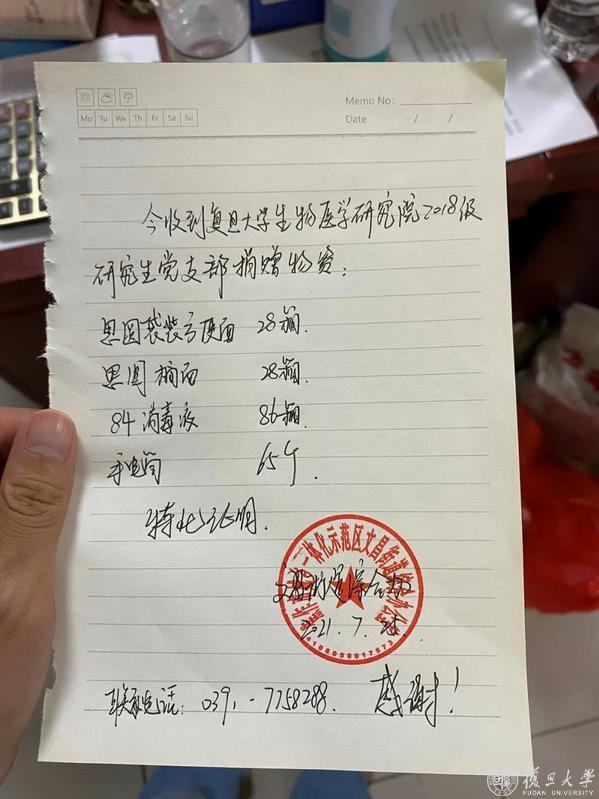 Memo No:
Mo Tu We Th Fr Sa Su
Date / /
今收到复旦大学生物医学研究院2018级
研究生党支部捐赠物资:
思圆袋装方便面 28箱.
思圆桶面 28箱.
84消毒液 86箱.
手电筒 65个
特此证明.
一体化示范区文昌街道
2021.7.
联系电话: 0391-7758288. 感谢!
復旦大學
FUDAN UNIVERSITY